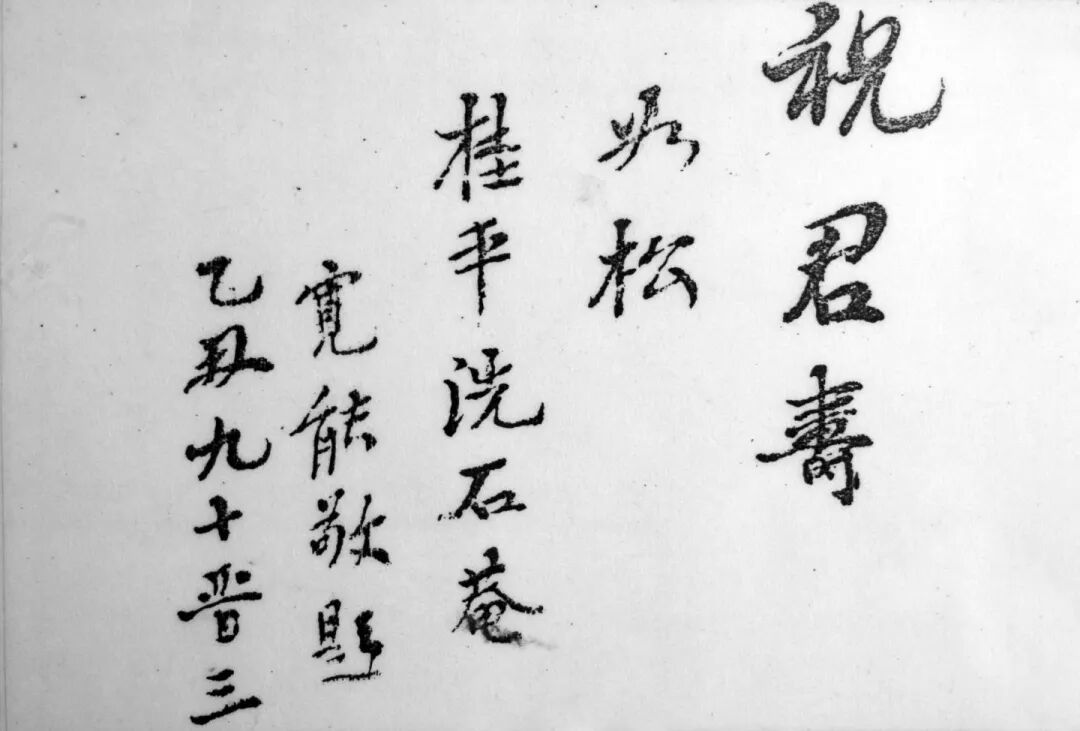 祝君壽
如松
桂平洗石菴
寬能敬題
乙丑九十晋三